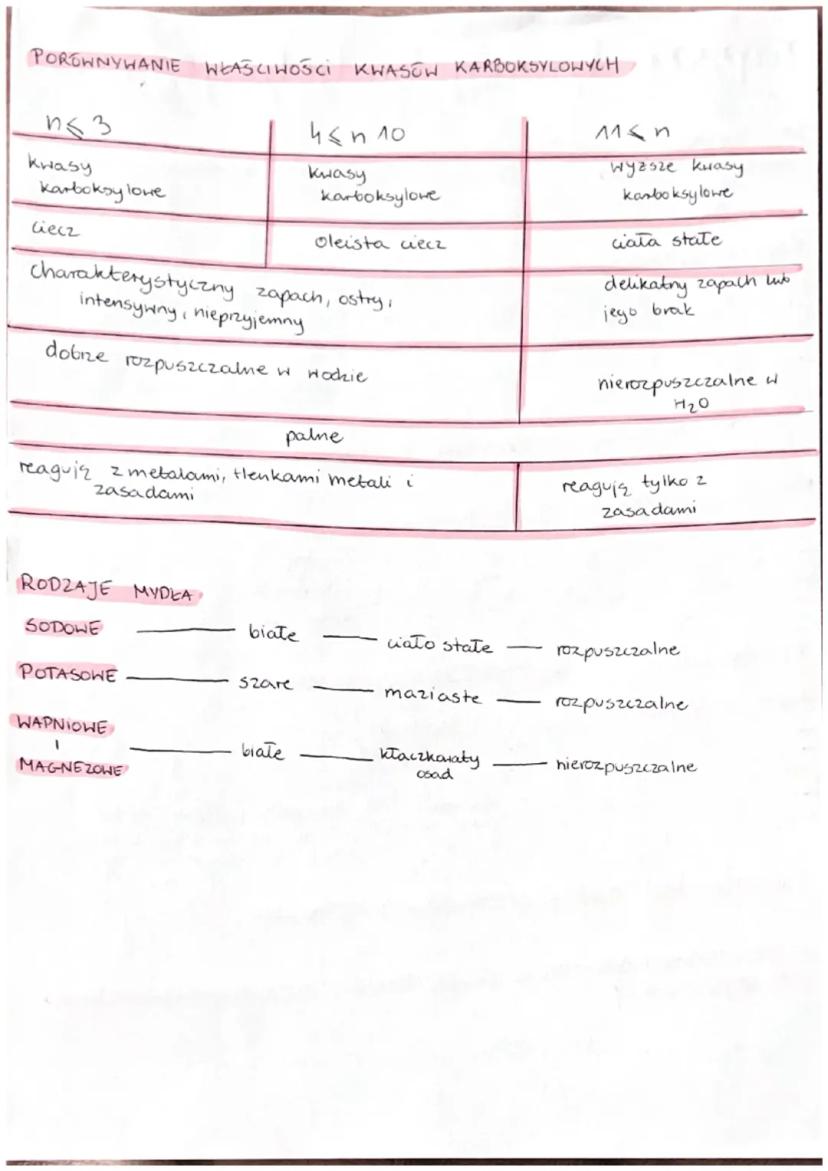 PORÓWNYWANIE WŁAŚCIWOŚCI KWASÓW KARBOKSYLOWYCH
n≤3 4≤n 10 11≤n
kwasy kwasy wyższe kwasy
karboksylowe karboksylowe karboksylowe
ciecz oleista ciecz ciała stałe
charakterystyczny zapach, ostry, delikatny zapach lub
intensywny, nieprzyjemny jego brak
dobrze rozpuszczalne w wodzie nierozpuszczalne w
H₂O
palne
reagują z metalami, tlenkami metali i reagują tylko z
zasadami zasadami
RODZAJE MYDŁA
SODOWE — białe — ciało stałe — rozpuszczalne
POTASOWE — szare — maziaste — rozpuszczalne
WAPNIOWE
i — białe — kłaczkowaty — nierozpuszczalne
MAGNEZOWE osad